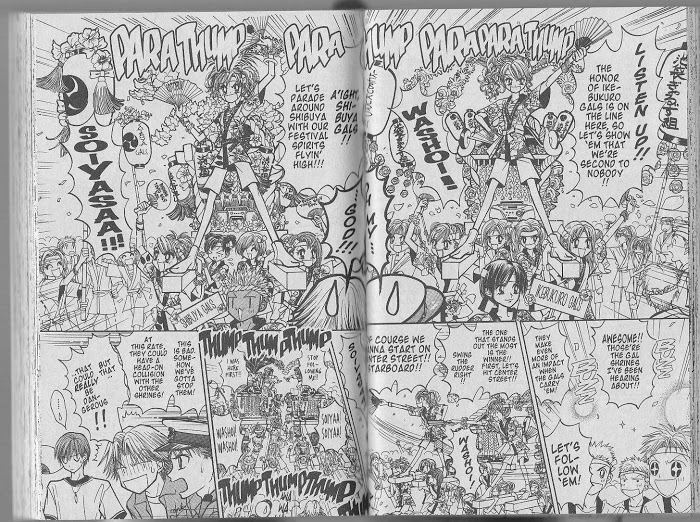 PARA PARA THUMP
LISTEN UP!!
THE
HONOR
OF IKE-
BUKURO
GALS IS ON
THE LINE
HERE, SO
LET'S SHOW
'EM THAT
WE'RE
SECOND TO
NOBODY
!!
WASHOI!!
IKEBUKURO GALS
AWESOME!!
THOSE'RE
THE GAL
SHRINES
I'VE SEEN
HEARING
ABOUT!!
THEY
MAKE
EVEN
MORE OF
AN IMPACT
WHEN
THE GALS
CARRY
'EM!
LET'S
FOL-
LOW
'EM!
THE ONE
THAT STANDS
OUT THE MOST
IS THE
WINNER!!
FIRST, LET'S
HIT CENTER
STREET!!
SWING
THE
RUDDER
RIGHT
WASHOI!
PARA THUMP
PARA
THUMP
A'IGHT,
SHI-
BUYA
GALS
!!
LET'S
PARADE
AROUND
SHIBUYA
WITH OUR
FESTIVAL
SPIRITS
FLYIN'
HIGH!!!
SOIYASAA!!!
GAL
GOD!!!
SHIBUYA GALS
THUMP THUMP THUMP
STOP
FOL-
LOWING
ME!!
I WAS
HERE
FIRST!!
SOIYAA!
SOIYAA!
WASHOI!
WASHOI!
THUMP THUMP THUMP
THIS IS
BAD.
SOME-
HOW,
WE'VE
GOTTA
STOP
THEM!
AT
THIS RATE,
THEY COULD
HAVE A
HEAD-ON
COLLISION
WITH THE
OTHER
SHRINES!
...BUT THAT
COULD
REALLY
BE
DAN-
GEROUS
!!